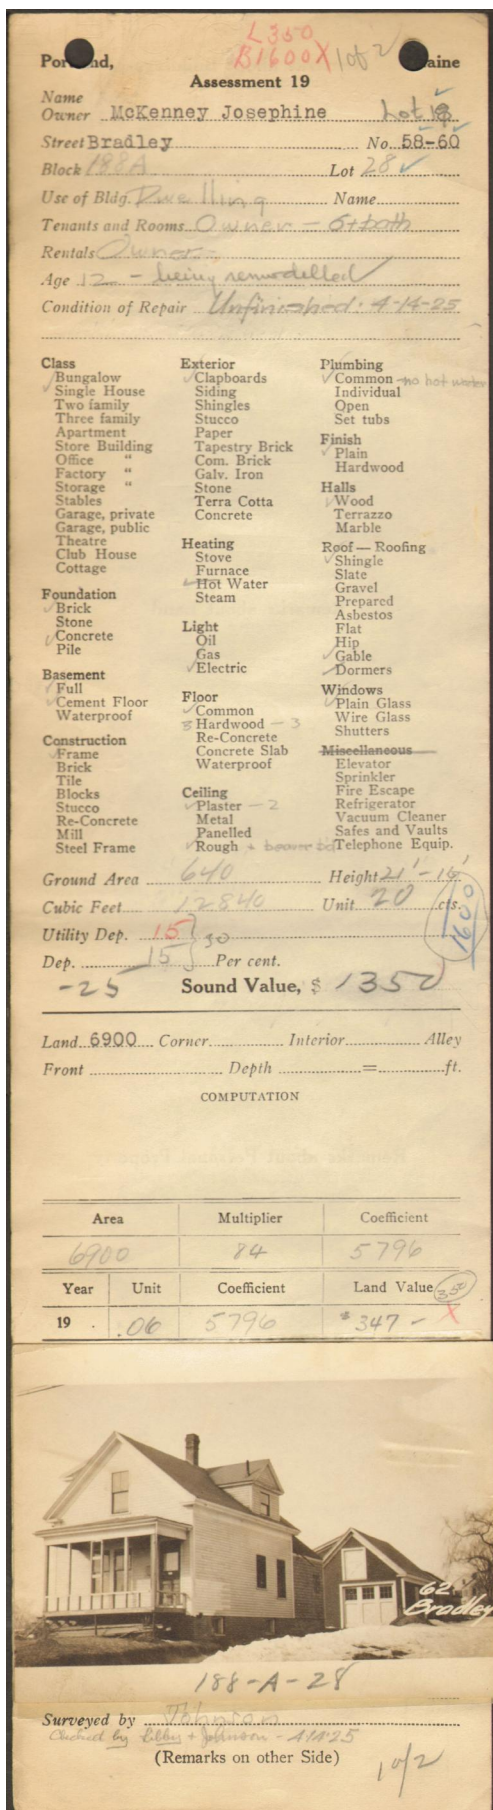 L350
B1600X 1 of 2
Portland, Maine
Assessment 19
Name
Owner McKenney Josephine Lot
Street Bradley No. 58-60
Block 188A Lot 28
Use of Bldg. Dwelling Name
Tenants and Rooms Owner - 6+bath
Rentals Owner-
Age 12 - being remodelled
Condition of Repair Unfinished. 4-14-25
Class
Bungalow
Single House
Two family
Three family
Apartment
Store Building
Office "
Factory "
Storage "
Stables
Garage, private
Garage, public
Theatre
Club House
Cottage
Foundation
Brick
Stone
Concrete
Pile
Basement
Full
Cement Floor
Waterproof
Construction
Frame
Brick
Tile
Blocks
Stucco
Re-Concrete
Mill
Steel Frame
Exterior
Clapboards
Siding
Shingles
Stucco
Paper
Tapestry Brick
Com. Brick
Galv. Iron
Stone
Terra Cotta
Concrete
Heating
Stove
Furnace
Hot Water
Steam
Light
Oil
Gas
Electric
Floor
Common
3 Hardwood - 3
Re-Concrete
Concrete Slab
Waterproof
Ceiling
Plaster - 2
Metal
Panelled
Rough + beaver bd
Plumbing
Common - no hot water
Individual
Open
Set tubs
Finish
Plain
Hardwood
Halls
Wood
Terrazzo
Marble
Roof — Roofing
Shingle
Slate
Gravel
Prepared
Asbestos
Flat
Hip
Gable
Dormers
Windows
Plain Glass
Wire Glass
Shutters
Miscellaneous
Elevator
Sprinkler
Fire Escape
Refrigerator
Vacuum Cleaner
Safes and Vaults
Telephone Equip.
Ground Area 640 Height 21'-16'
Cubic Feet 12840 Unit 20 cts.
1600
Utility Dep. 15 } 30
Dep. 15 } Per cent.
-25 Sound Value, $ 1350
Land 6900 Corner Interior Alley
Front Depth = ft.
COMPUTATION
Area Multiplier Coefficient
6900 84 5796
Year Unit Coefficient Land Value 350
19 .06 5796 $347- X
62
Bradley
188-A-28
Surveyed by Johnson
Checked by Libby + Johnson - 4-14-25
(Remarks on other Side)
1 of 2